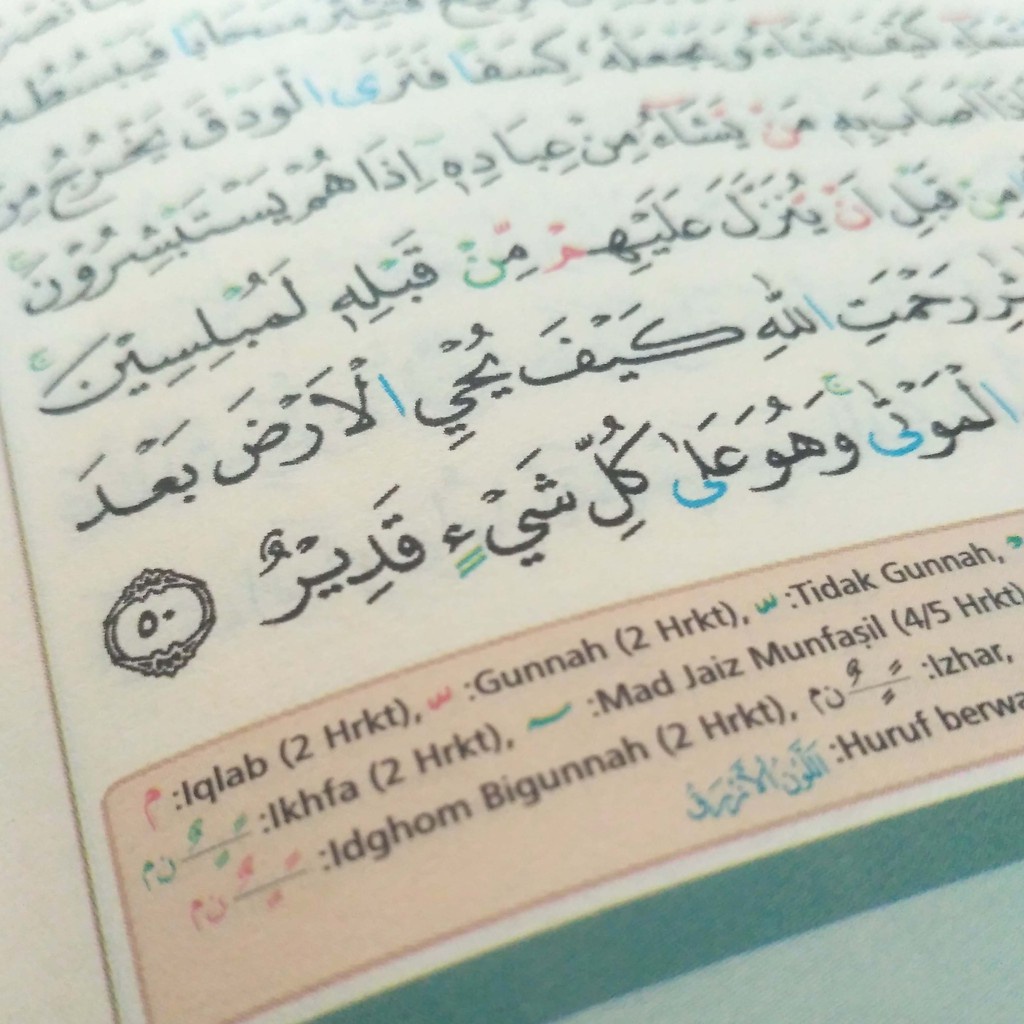 سَحَابًا فَيَبْسُطُهٗ
كَيْفَ يَشَاۤءُ وَيَجْعَلُهٗ كِسَفًا فَتَرَى الْوَدْقَ يَخْرُجُ مِنْ
اَصَابَ بِهٖ مَنْ يَّشَاۤءُ مِنْ عِبَادِهٖٓ اِذَا هُمْ يَسْتَبْشِرُوْنَۚ
مِنْ قَبْلِ اَنْ يُّنَزَّلَ عَلَيْهِمْ مِّنْ قَبْلِهٖ لَمُبْلِسِيْنَۚ
رَحْمَتِ اللّٰهِ كَيْفَ يُحْيِ الْاَرْضَ بَعْدَ
الْمَوْتٰىۚ وَهُوَ عَلٰى كُلِّ شَيْءٍ قَدِيْرٌ ٥٠
م :Iqlab (2 Hrkt), س :Gunnah (2 Hrkt), س :Tidak Gunnah,
ن م :Ikhfa (2 Hrkt), :Mad Jaiz Munfaṣil (4/5 Hrkt)
ن م :Idghom Bigunnah (2 Hrkt), ن م :Izhar,
اَللَّوْنُ الْاَزْرَقُ :Huruf